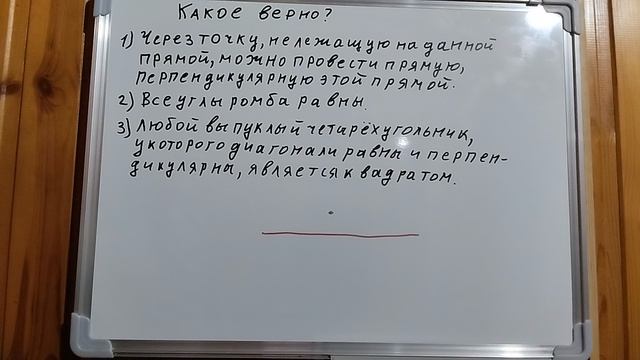 Какое верно?
1) Через точку, не лежащую на данной
прямой, можно провести прямую,
перпендикулярную этой прямой.
2) Все углы ромба равны.
3) Любой выпуклый четырёхугольник,
у которого диагонали равны и перпен-
дикулярны, является квадратом.